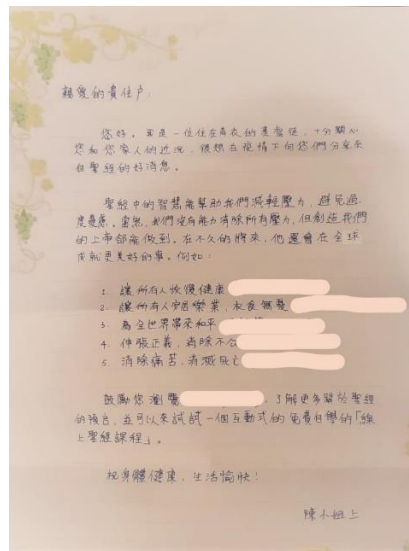 親愛的貴住戶：
您好。我是一位住在青衣的基督徒，十分關心
您和您家人的近況，很想在疫情下向您們分享來
自聖經的好消息。
聖經中的智慧能幫助我們減輕壓力，避免過
度憂慮。當然，我們沒有能力消除所有壓力，但創造我們
的上帝卻能做到。在不久的將來，他還會在全球
成就更美好的事。例如：
1. 讓所有人恢復健康
2. 讓所有人安居樂業，衣食無憂
3. 為全世界帶來和平
4. 伸張正義，消除不公
5. 消除痛苦，消滅死亡
鼓勵您瀏覽 ，了解更多關於聖經
的預言，並可以來試試一個互動式的免費自學的「線
上聖經課程」。
祝身體健康，生活愉快！
陳小姐上